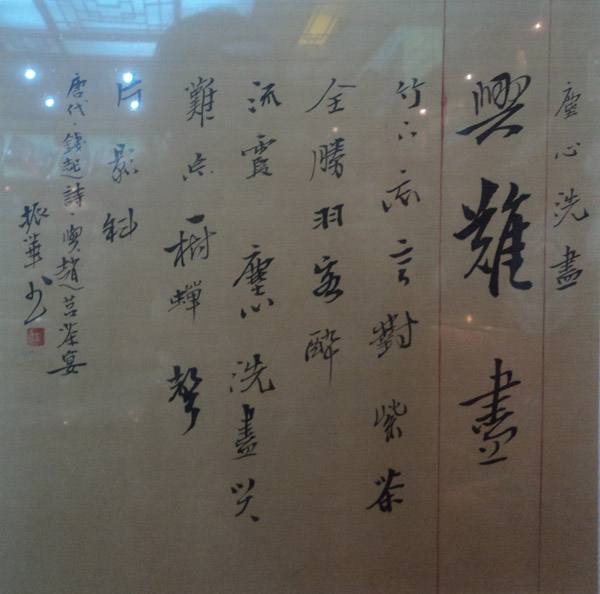 塵心洗盡
興難盡
竹下忘言對紫茶
全勝羽客醉
流霞塵心洗盡兴
難尽一樹蟬聲
片影斜
唐代·錢起詩·與趙莒茶宴
振華书